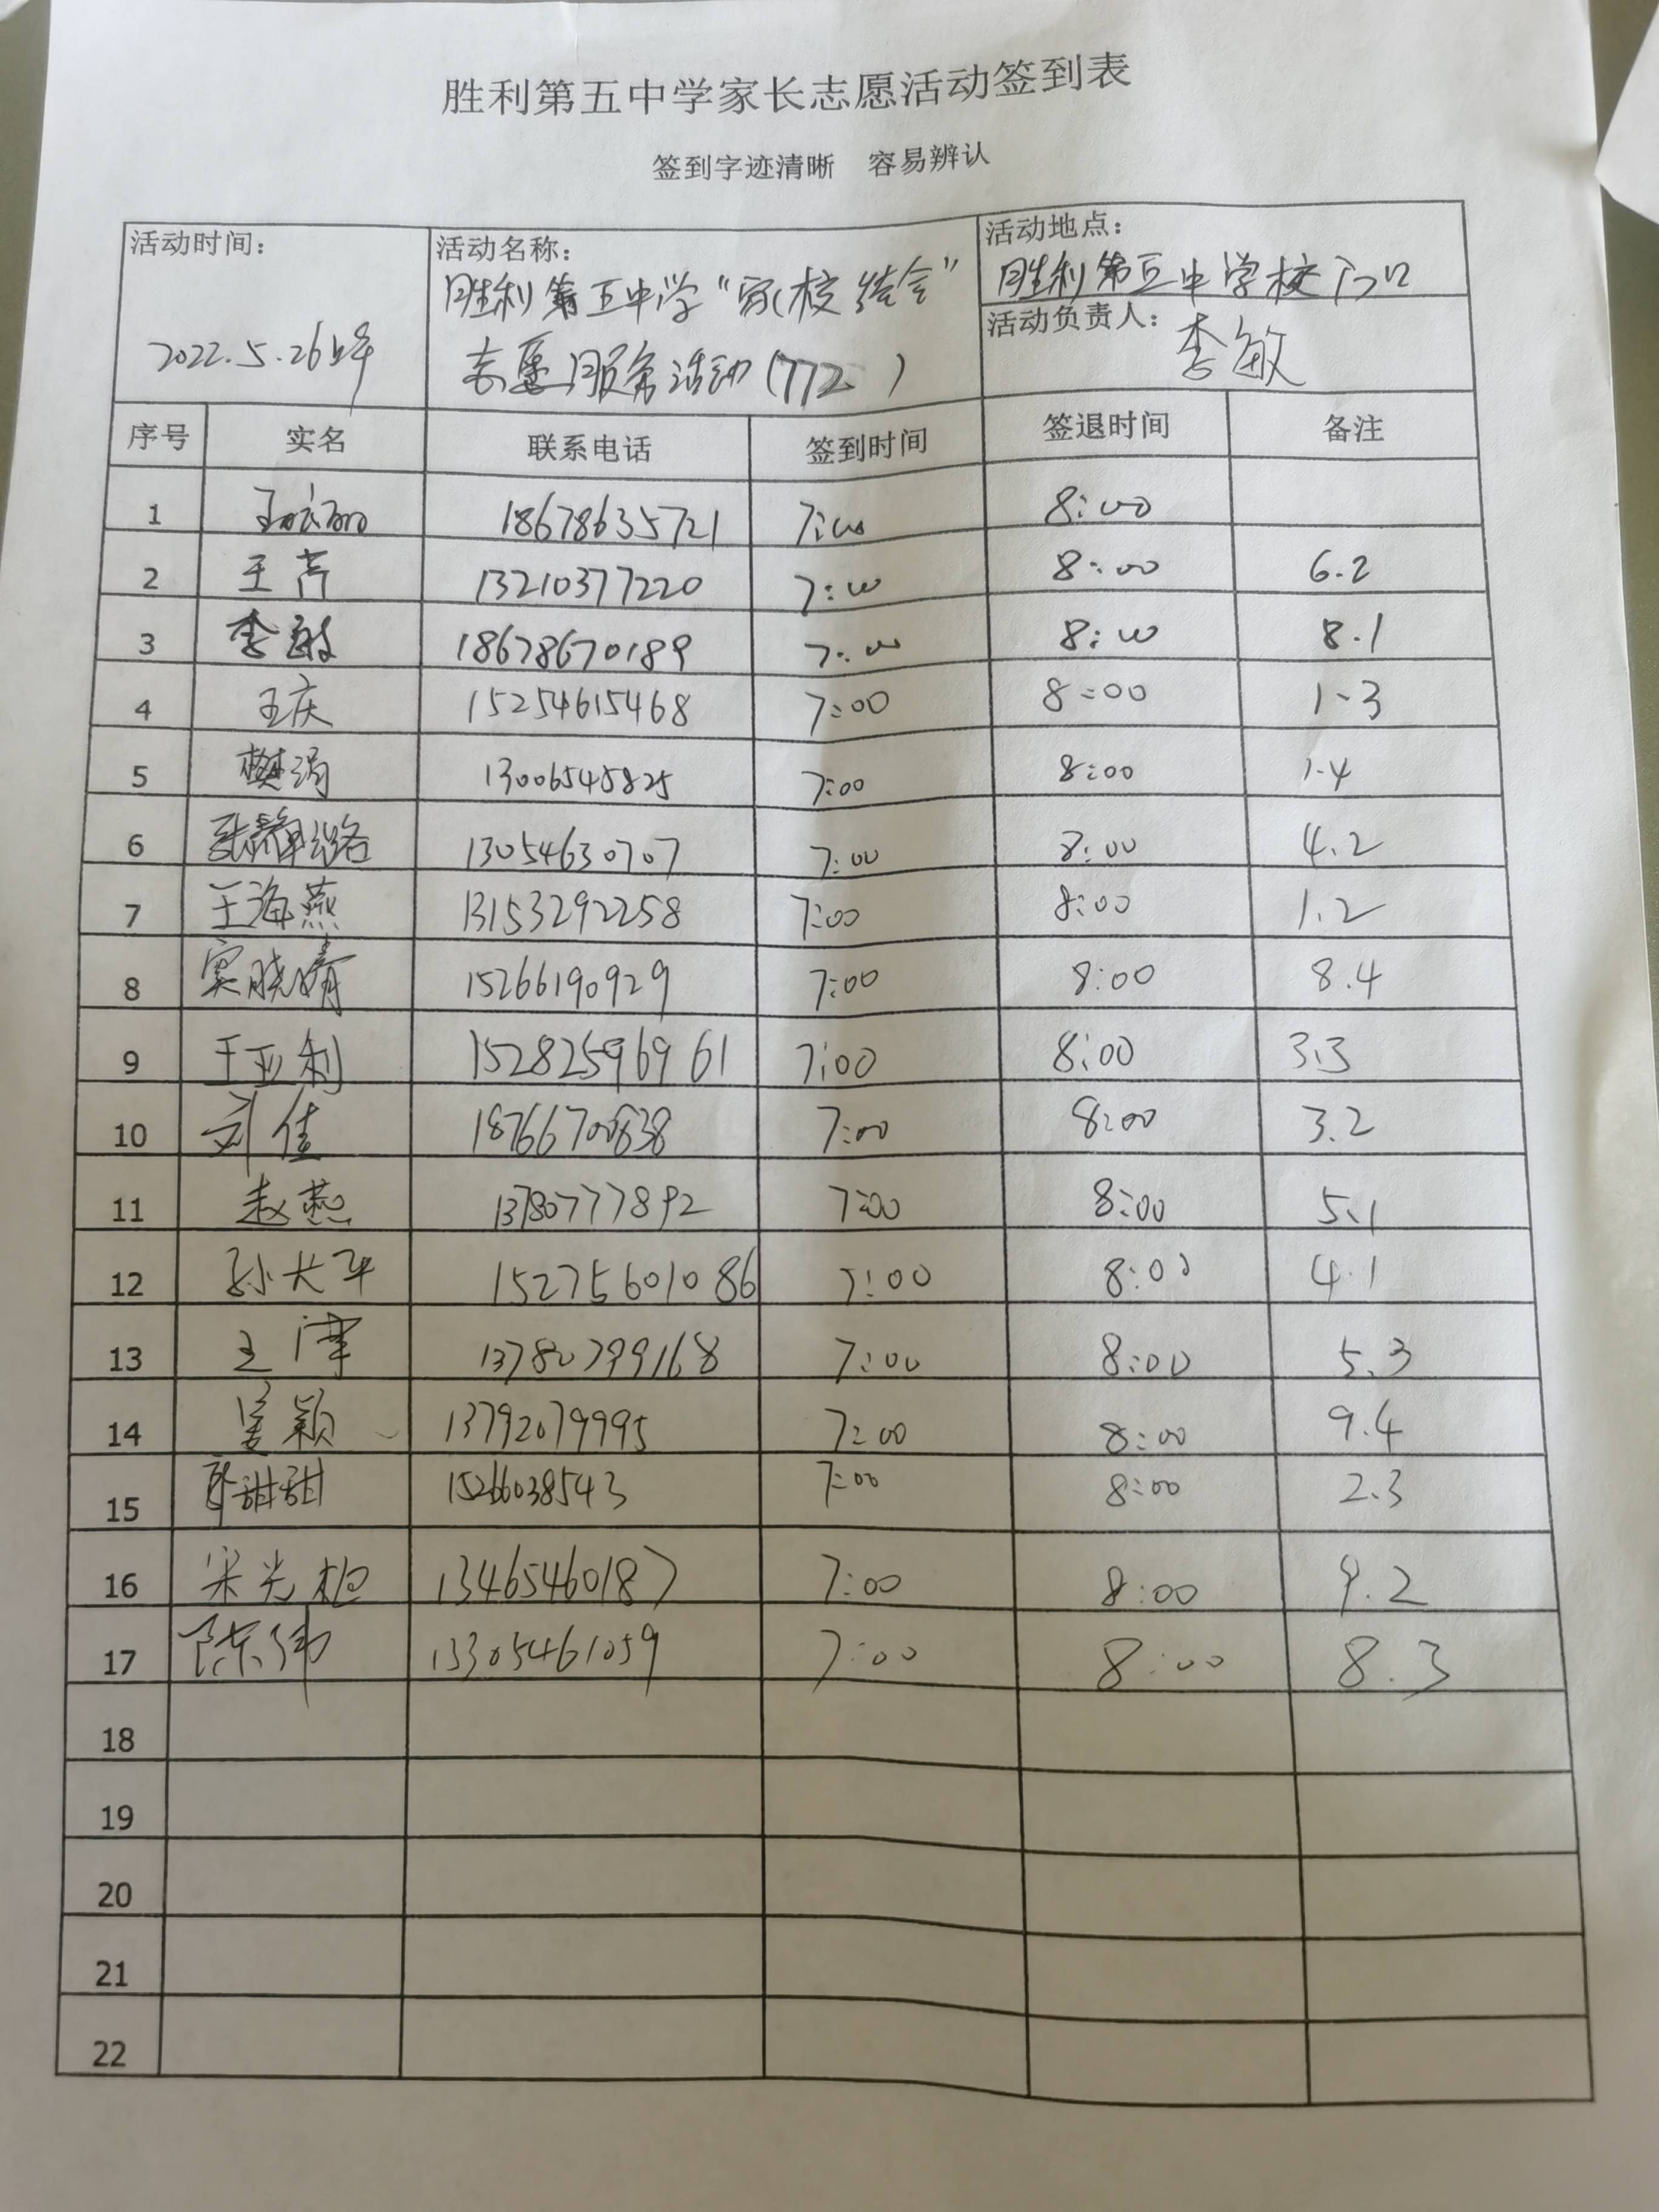 胜利第五中学家长志愿活动签到表
签到字迹清晰 容易辨认
活动时间：
2022.5.26
活动名称：
胜利第五中学“家校结合”
志愿服务活动（772）
活动地点：
胜利第五中学校门口
活动负责人：
李敏
序号 实名 联系电话 签到时间 签退时间 备注
1 18678635721 7:00 8:00
2 王芹 13210377220 7:00 8:00 6.2
3 李敏 18678670189 7:00 8:00 8.1
4 王庆 15254615468 7:00 8:00 1-3
5 樊娟 13006545825 7:00 8:00 1.4
6 张静 13054630707 7:00 8:00 4.2
7 王海燕 13153292258 7:00 8:00 1.2
8 窦晓婧 15266190929 7:00 8:00 8.4
9 王亚利 15282596961 7:00 8:00 3.3
10 刘佳 18766700838 7:00 8:00 3.2
11 赵燕 13780777892 7:00 8:00 5.1
12 孙大平 15275601086 7:00 8:00 4.1
13 王津 13780799168 7:00 8:00 5.3
14 颖 13792079995 7:00 8:00 9.4
15 甜甜 15266038543 7:00 8:00 2.3
16 宋光 13465460187 7:00 8:00 9.2
17 陈纬 13305461059 7:00 8:00 8.3
18
19
20
21
22